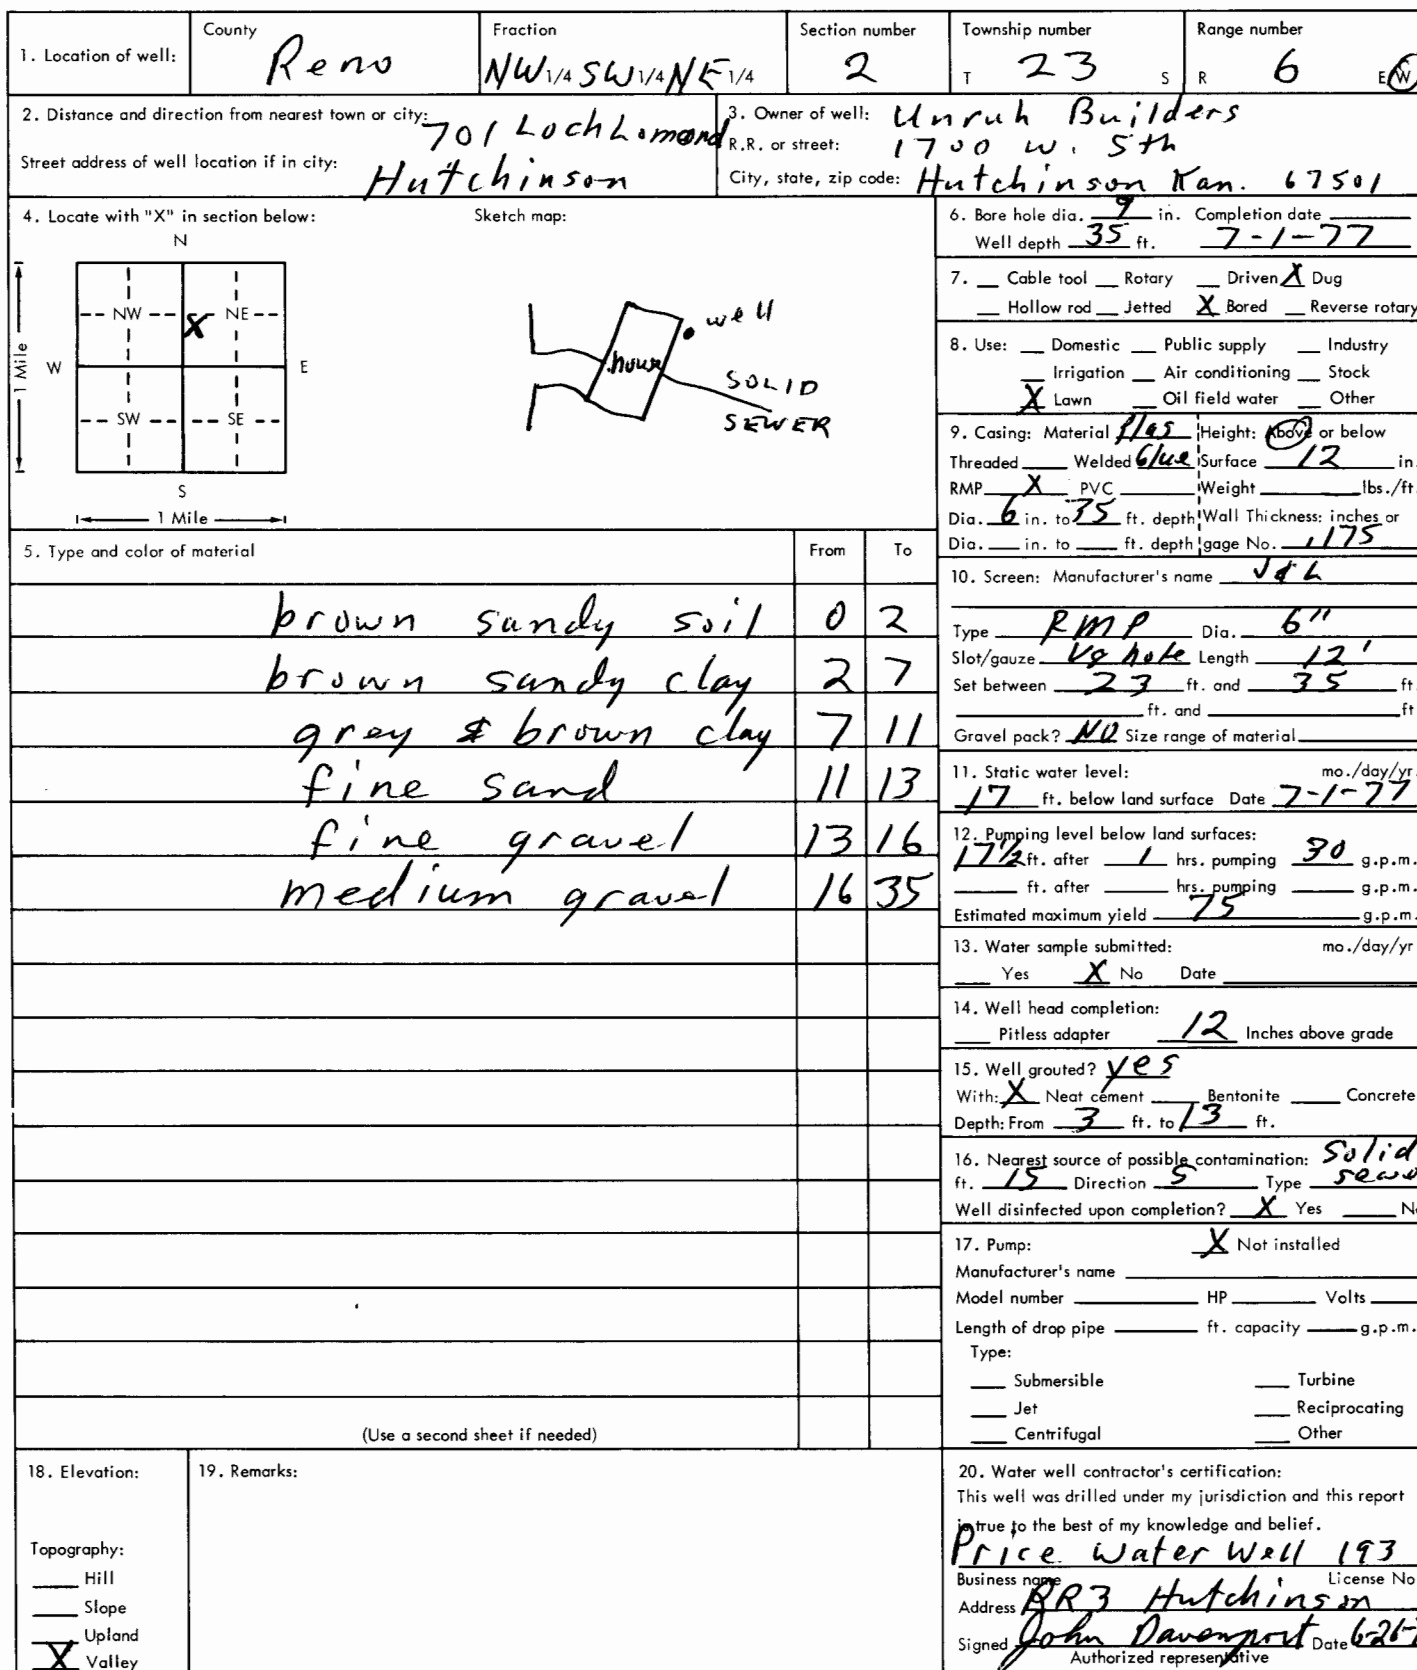 1. Location of well: County Reno Fraction NW 1/4 SW 1/4 NE 1/4 Section number 2 Township number T 23 S Range number R 6 E W
2. Distance and direction from nearest town or city: 701 Loch Lomond
Street address of well location if in city: Hutchinson
3. Owner of well: Unruh Builders
R.R. or street: 1700 W. 5th
City, state, zip code: Hutchinson Kan. 67501
4. Locate with "X" in section below: Sketch map:
N
NW X NE
W E
1 Mile
SW SE
S
1 Mile
well
house
SOLID
SEWER
5. Type and color of material From To
brown sandy soil 0 2
brown sandy clay 2 7
grey & brown clay 7 11
fine sand 11 13
fine gravel 13 16
medium gravel 16 35
(Use a second sheet if needed)
6. Bore hole dia. 9 in. Completion date
Well depth 35 ft. 7-1-77
7. Cable tool Rotary Driven X Dug
Hollow rod Jetted X Bored Reverse rotary
8. Use: Domestic Public supply Industry
Irrigation Air conditioning Stock
X Lawn Oil field water Other
9. Casing: Material Plas Height: Above or below
Threaded Welded Glue Surface 12 in.
RMP X PVC Weight lbs./ft.
Dia. 6 in. to 35 ft. depth Wall Thickness: inches or
Dia. in. to ft. depth gage No. .175
10. Screen: Manufacturer's name J & L
Type RMP Dia. 6"
Slot/gauze hole Length 12'
Set between 23 ft. and 35 ft.
ft. and ft
Gravel pack? NO Size range of material
11. Static water level: mo./day/yr.
17 ft. below land surface Date 7-1-77
12. Pumping level below land surfaces:
17 1/2 ft. after 1 hrs. pumping 30 g.p.m.
ft. after hrs. pumping g.p.m.
Estimated maximum yield 75 g.p.m.
13. Water sample submitted: mo./day/yr
Yes X No Date
14. Well head completion:
Pitless adapter 12 Inches above grade
15. Well grouted? yes
With: X Neat cement Bentonite Concrete
Depth: From 3 ft. to 13 ft.
16. Nearest source of possible contamination: Solid
ft. 15 Direction S Type sewe
Well disinfected upon completion? X Yes No
17. Pump: X Not installed
Manufacturer's name
Model number HP Volts
Length of drop pipe ft. capacity g.p.m.
Type:
Submersible Turbine
Jet Reciprocating
Centrifugal Other
18. Elevation:
Topography:
Hill
Slope
Upland
X Valley
19. Remarks:
20. Water well contractor's certification:
This well was drilled under my jurisdiction and this report
is true to the best of my knowledge and belief.
Price Water Well 193
Business name License No
Address RR3 Hutchinson
Signed John Davenport Date 6-26-
Authorized representative